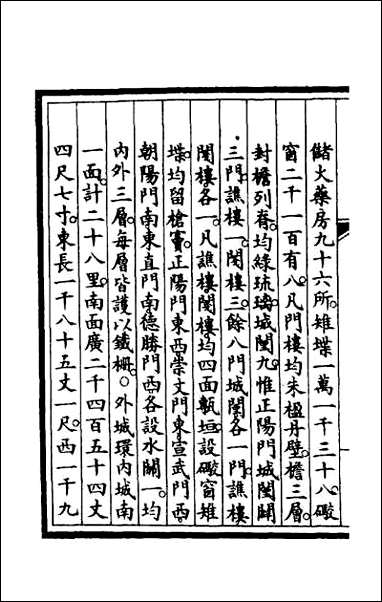 儲火藥房九十六所雉堞一萬一千三十八礟
窗二千一百有八凡門樓均朱楹丹壁檐三層
封檐列脊均綠琉璃城闉九惟正陽門城闉闢
三門譙樓一閘樓三餘八門城闉各一門譙樓
閘樓各一凡譙樓閘樓均四面甎垣設礟窗雉
堞均留槍竇正陽門東西崇文門東宣武門西
朝陽門南東直門南德勝門西各設水關一均
內外三層每層皆護以鐵柵○外城環內城南
一面計二十八里南面廣二千四百五十四丈
四尺七寸東長一千八十五丈一尺西一千九